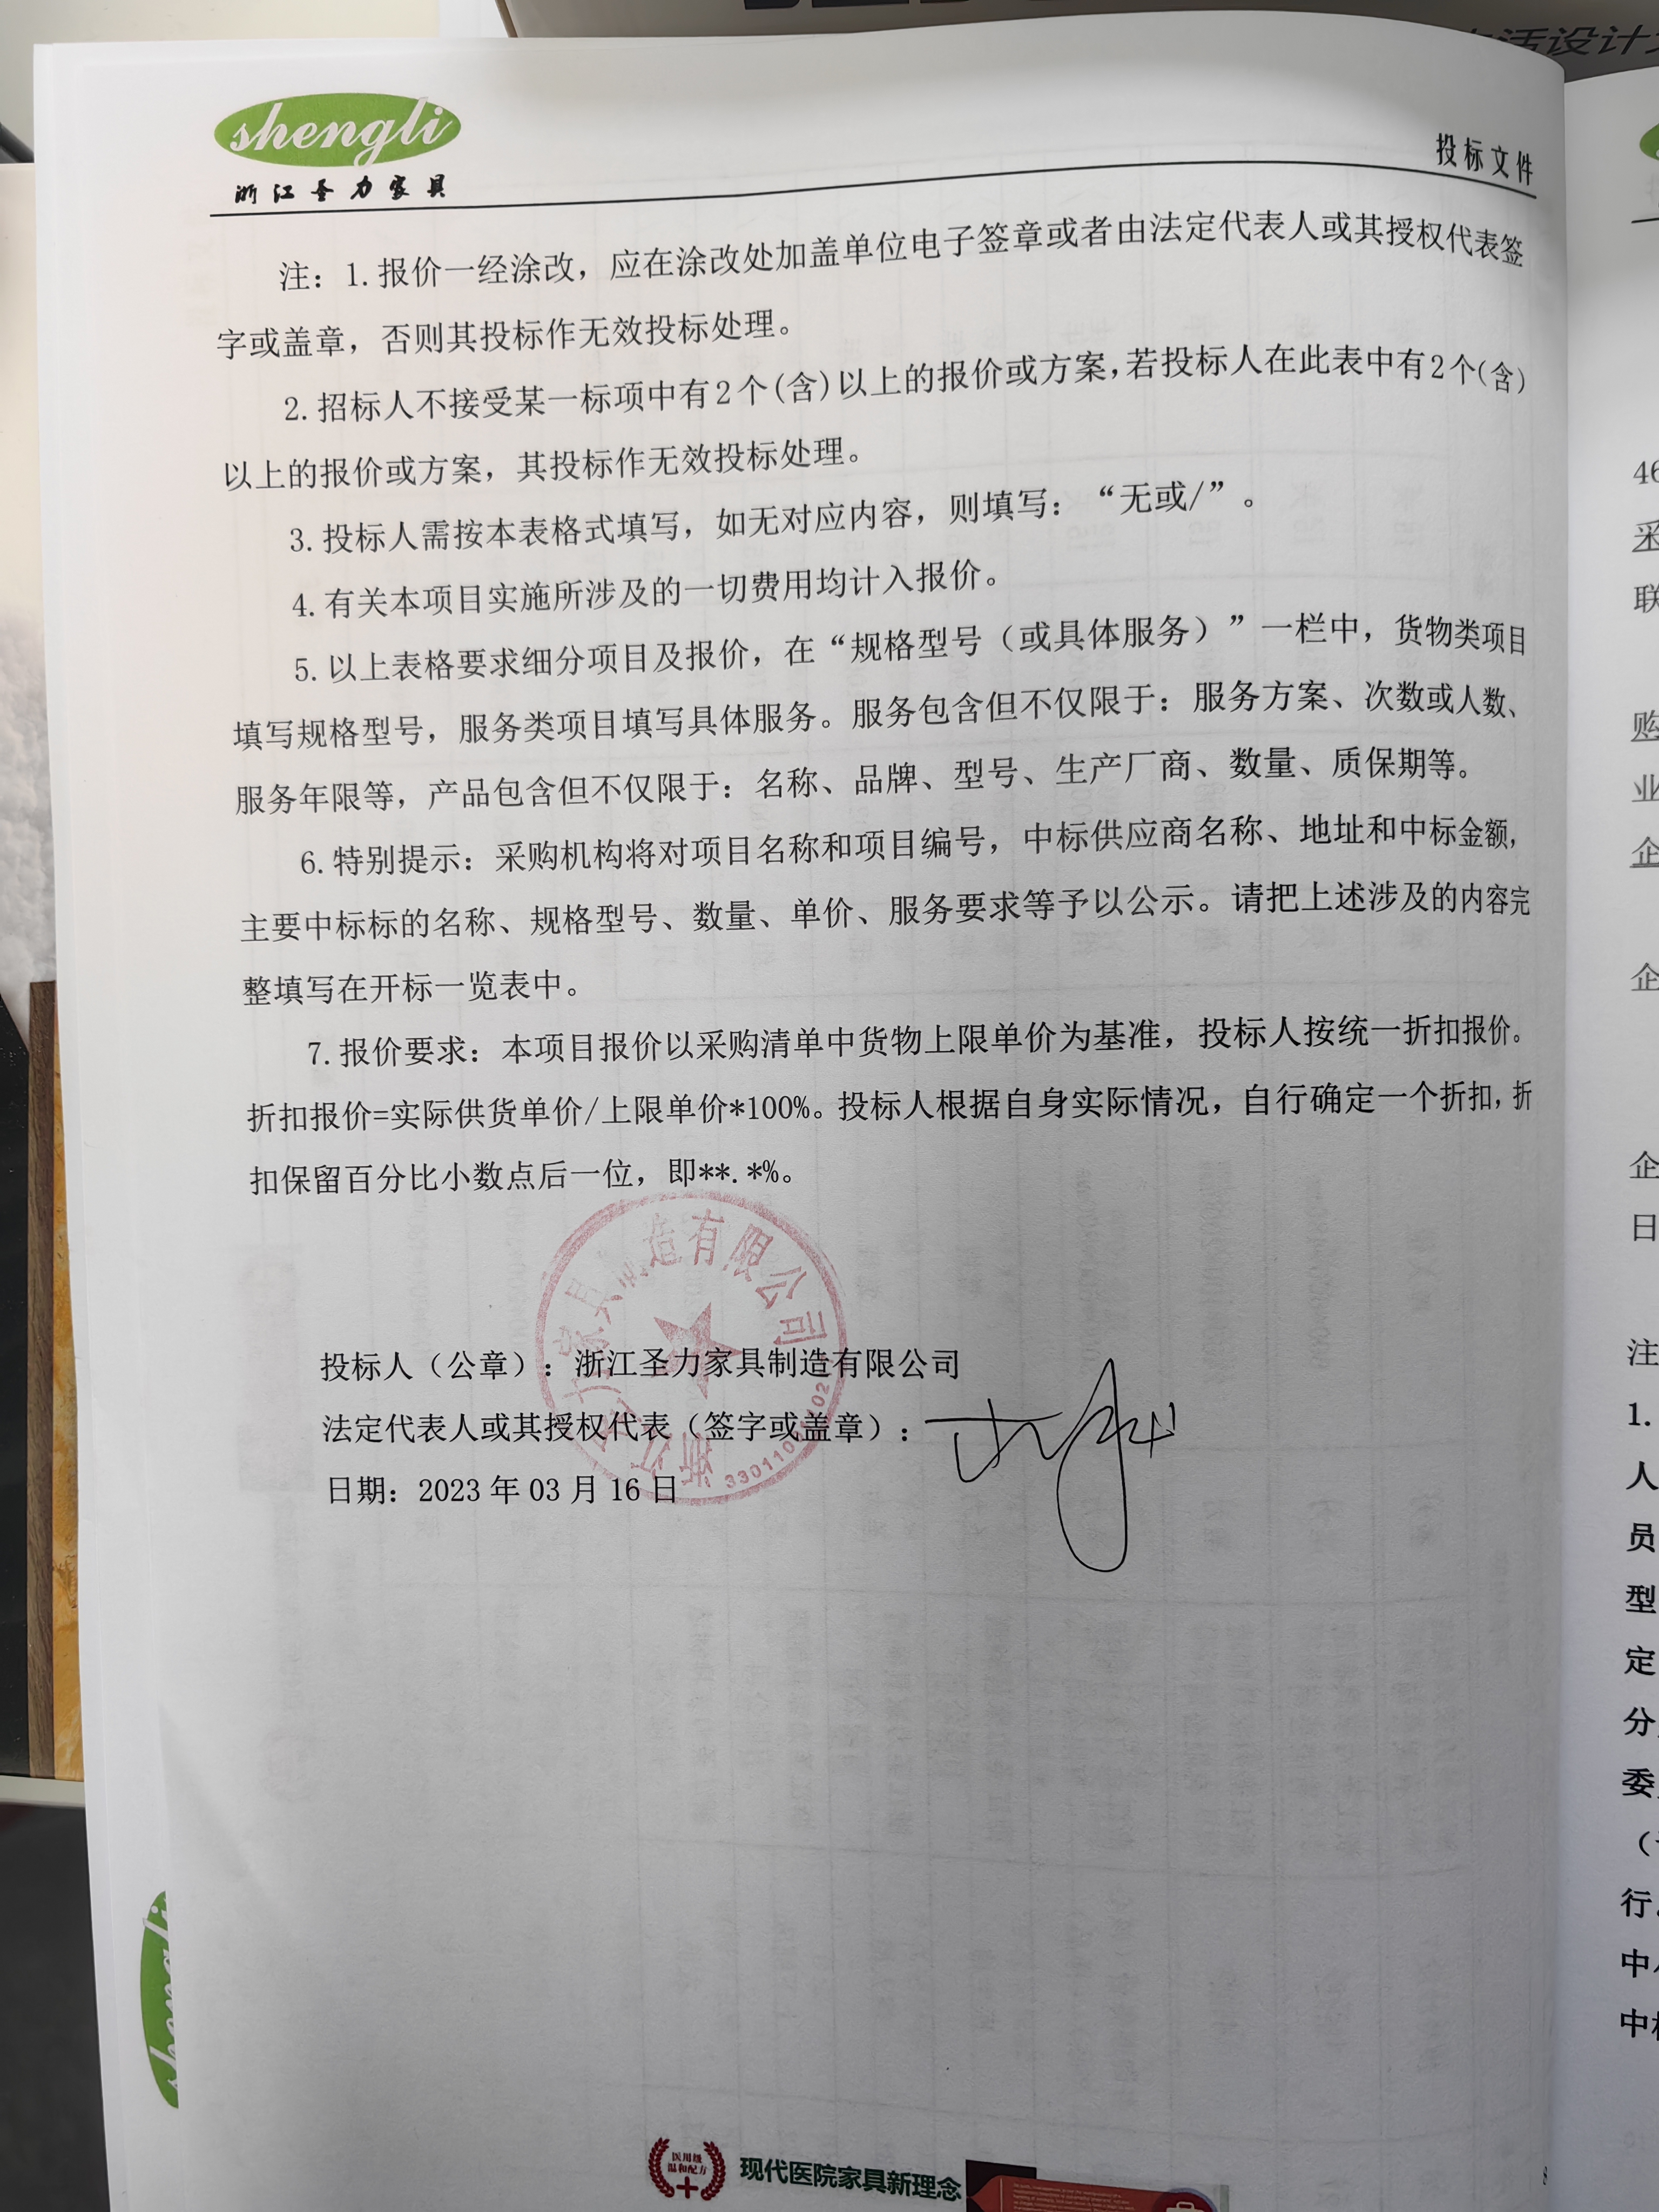 shengli
浙江圣力家具
投标文件
注：1.报价一经涂改，应在涂改处加盖单位电子签章或者由法定代表人或其授权代表签
字或盖章，否则其投标作无效投标处理。
2.招标人不接受某一标项中有2个(含)以上的报价或方案,若投标人在此表中有2个(含)
以上的报价或方案，其投标作无效投标处理。
3.投标人需按本表格式填写，如无对应内容，则填写：“无或/”。
4.有关本项目实施所涉及的一切费用均计入报价。
5.以上表格要求细分项目及报价，在“规格型号（或具体服务）”一栏中，货物类项目
填写规格型号，服务类项目填写具体服务。服务包含但不仅限于：服务方案、次数或人数、
服务年限等，产品包含但不仅限于：名称、品牌、型号、生产厂商、数量、质保期等。
6.特别提示：采购机构将对项目名称和项目编号，中标供应商名称、地址和中标金额，
主要中标标的名称、规格型号、数量、单价、服务要求等予以公示。请把上述涉及的内容完
整填写在开标一览表中。
7.报价要求：本项目报价以采购清单中货物上限单价为基准，投标人按统一折扣报价。
折扣报价=实际供货单价/上限单价*100%。投标人根据自身实际情况，自行确定一个折扣,折
扣保留百分比小数点后一位，即**.*%。
投标人（公章）：浙江圣力家具制造有限公司
法定代表人或其授权代表（签字或盖章）：
日期：2023 年 03 月 16 日
浙江圣力家具制造有限公司
医用级
温和配方
现代医院家具新理念
8
活设计
46
采
联
购
业
企
企
企
日
注
1.
人
员
型
定
分
委
行
中
中